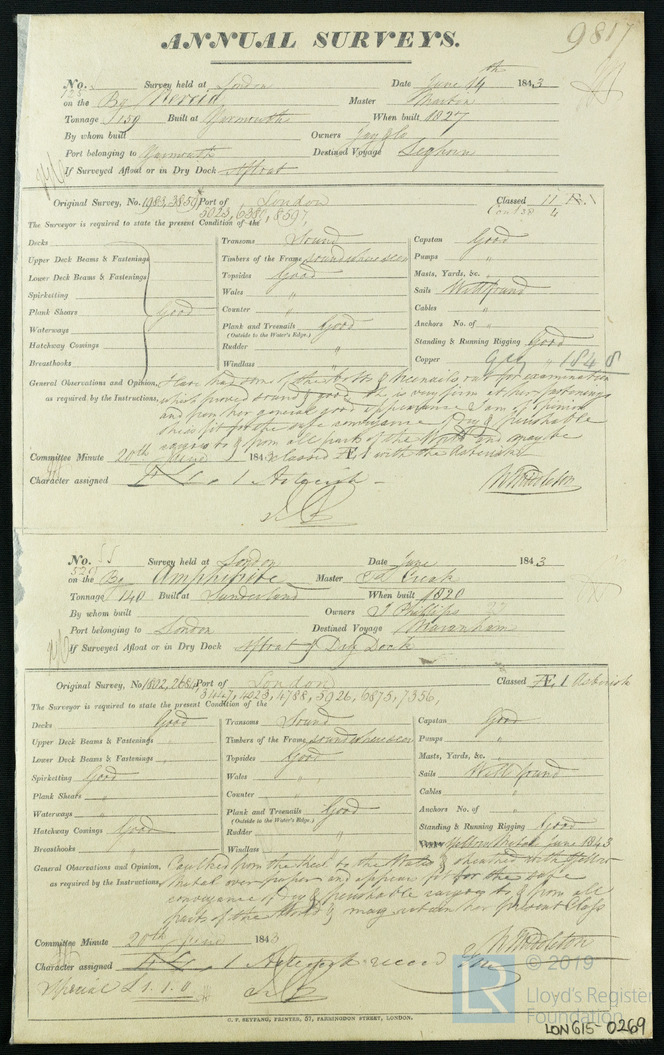 9817
ANNUAL SURVEYS.
No. Survey held at London Date June 14th 1843
on the Bg Master
Tonnage 159 Built at Yarmouth When built 1827
By whom built Owners Jay & Co
Port belonging to Yarmouth Destined Voyage Leghorn
If Surveyed Afloat or in Dry Dock Afloat
Original Survey, No. 1983, 3859 Port of London Classed 11
5023, 6380, 8597,
The Surveyor is required to state the present Condition of the
Decks Transoms Sound Capstan Good
Upper Deck Beams & Fastenings Timbers of the Frame sound where seen Pumps "
Lower Deck Beams & Fastenings Topsides Good Masts, Yards, &c. "
Spirketting Wales " Sails Well found
Plank Shears Good Counter " Cables "
Waterways Plank and Treenails Good Anchors No. of "
(Outside to the Water's Edge.)
Hatchway Comings Rudder " Standing & Running Rigging Good
Breasthooks Windlass " Copper 1848
General Observations and Opinion, Have had some of the bolts & treenails out for examination
as required by the Instructions, which proved sound & good. She is very firm in her fastenings
and from her general good appearance I am of opinion
she is fit for the safe conveyance of Dry & perishable
cargoes to & from all parts of the World and may be
Committee Minute 20th June 1843 classed Æ 1 with the Asterisk
Character assigned Æ 1 Asterisk W Middleton
No. 55 Survey held at London Date June 1843
on the Bg Amphitrite Master Creak
Tonnage 140 Built at Sunderland When built 1820
By whom built Owners J Phillips
Port belonging to London Destined Voyage Maranham
If Surveyed Afloat or in Dry Dock Afloat & Dry Dock
Original Survey, No. 1802, 2684 Port of London Classed Æ 1 Asterisk
3447, 4023, 4788, 5926, 6875, 7356,
The Surveyor is required to state the present Condition of the
Decks Good Transoms Sound Capstan Good
Upper Deck Beams & Fastenings " Timbers of the Frame sound where seen Pumps "
Lower Deck Beams & Fastenings " Topsides Good Masts, Yards, &c. "
Spirketting Good Wales " Sails Well found
Plank Shears " Counter " Cables "
Waterways " Plank and Treenails Good Anchors No. of "
(Outside to the Water's Edge.)
Hatchway Comings Good Rudder " Standing & Running Rigging Good
Breasthooks " Windlass " Yellow Metal June 1843
General Observations and Opinion, Caulked from the Keel to the Wales & sheathed with Yellow
as required by the Instructions, Metal over paper and appears fit for the safe
conveyance of Dry & perishable cargoes to & from all
parts of the World & may retain her present Class
Committee Minute 20th June 1843 W Middleton
Character assigned Æ 1 Asterisk
Special £1.1.0
C. F. SEYFANG, PRINTER, 57, FARRINGDON STREET, LONDON.
LR © 2019
Lloyd's Register
Foundation
LON615-0269